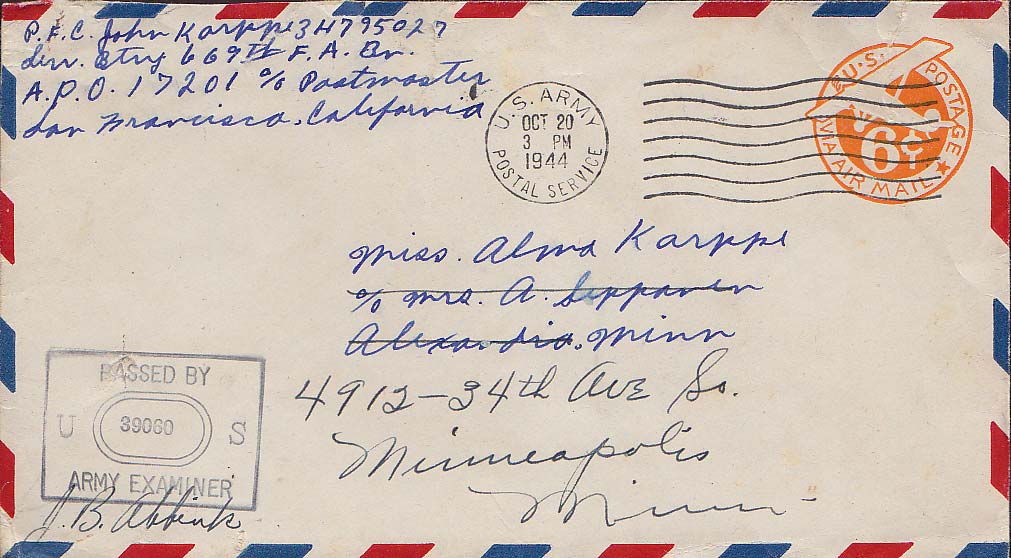 P.F.C. John Karppe 34795027
Serv. Btry 669th F.A. Bn.
A.P.O. 17201 c/o Postmaster
San Francisco, California
U.S. ARMY
OCT 20
3 PM
1944
POSTAL SERVICE
U.S. POSTAGE
6¢
VIA AIR MAIL
Miss. Alma Karppe
c/o Mrs. A. Seppanen
Alexandria, Minn
4912-34th Ave So.
Minneapolis
Minn
PASSED BY
U 39060 S
ARMY EXAMINER
J.B. Abbink